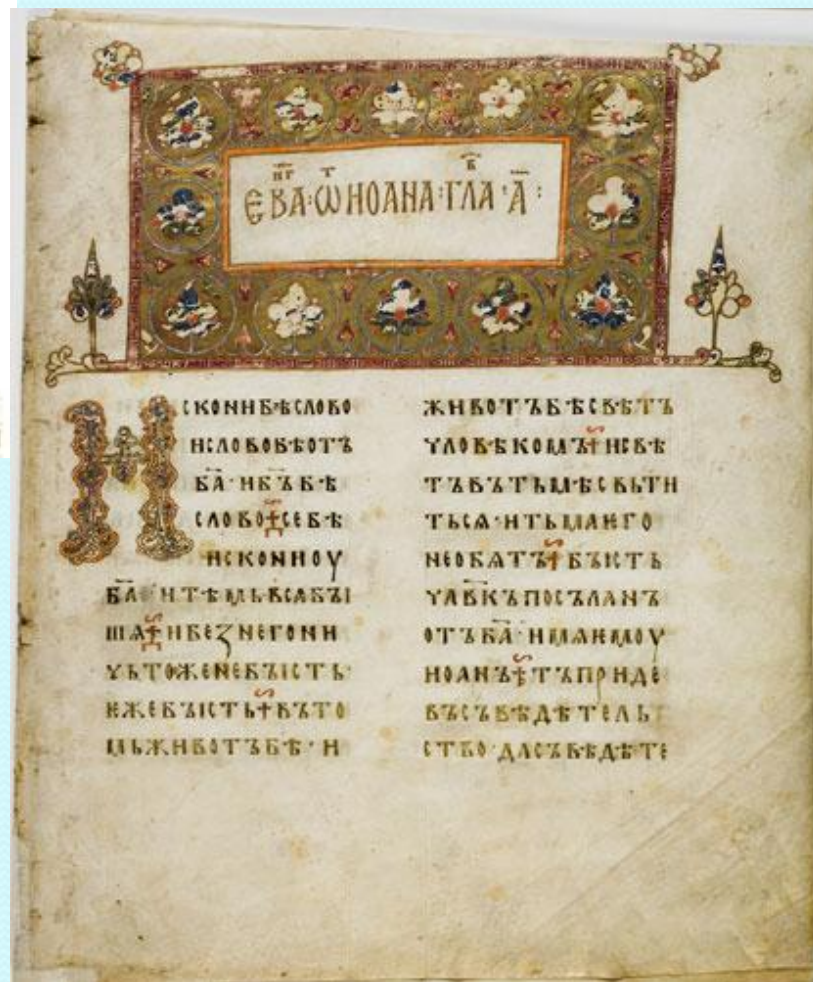 ЕВА҃НГ · Ѿ ИОАНА · ГЛА҃В · А҃ :
ИСКОНИБѢСЛОВО
ИСЛОВОБѢОТЪ
БА҃ · ИБ҃ЪБѢ
СЛОВО СЕБѢ
ИСКОНИОУ
БА҃ ИТѢМЬВСѦБЪІ
ШѦ ИБЕЗНЕГОНИ
ЧЬТОЖЕНЕБЪІСТЬ ·
ѤЖЕБЪІСТЬ ВЪТО
МЬЖИВОТЪБѢ · И
ЖИВОТЪБѢСВѢТЪ
ЧЛОВѢКОМЪ ИСВѢ
ТЪВЪТЬМѢСВЬТИ
ТЬСѦ · ИТЬМАѤГО
НЕОБѦТЪ БЪІСТЬ
ЧЛ҃ВКЪПОСЪЛАНЪ
ОТЪБА҃ · ИМѦѤМОУ
ИОАНЪ ТЪПРИДЕ
ВЪСЪВѢДѢТЕЛЬ
СТВО · ДАСЪВѢДѢТЕ